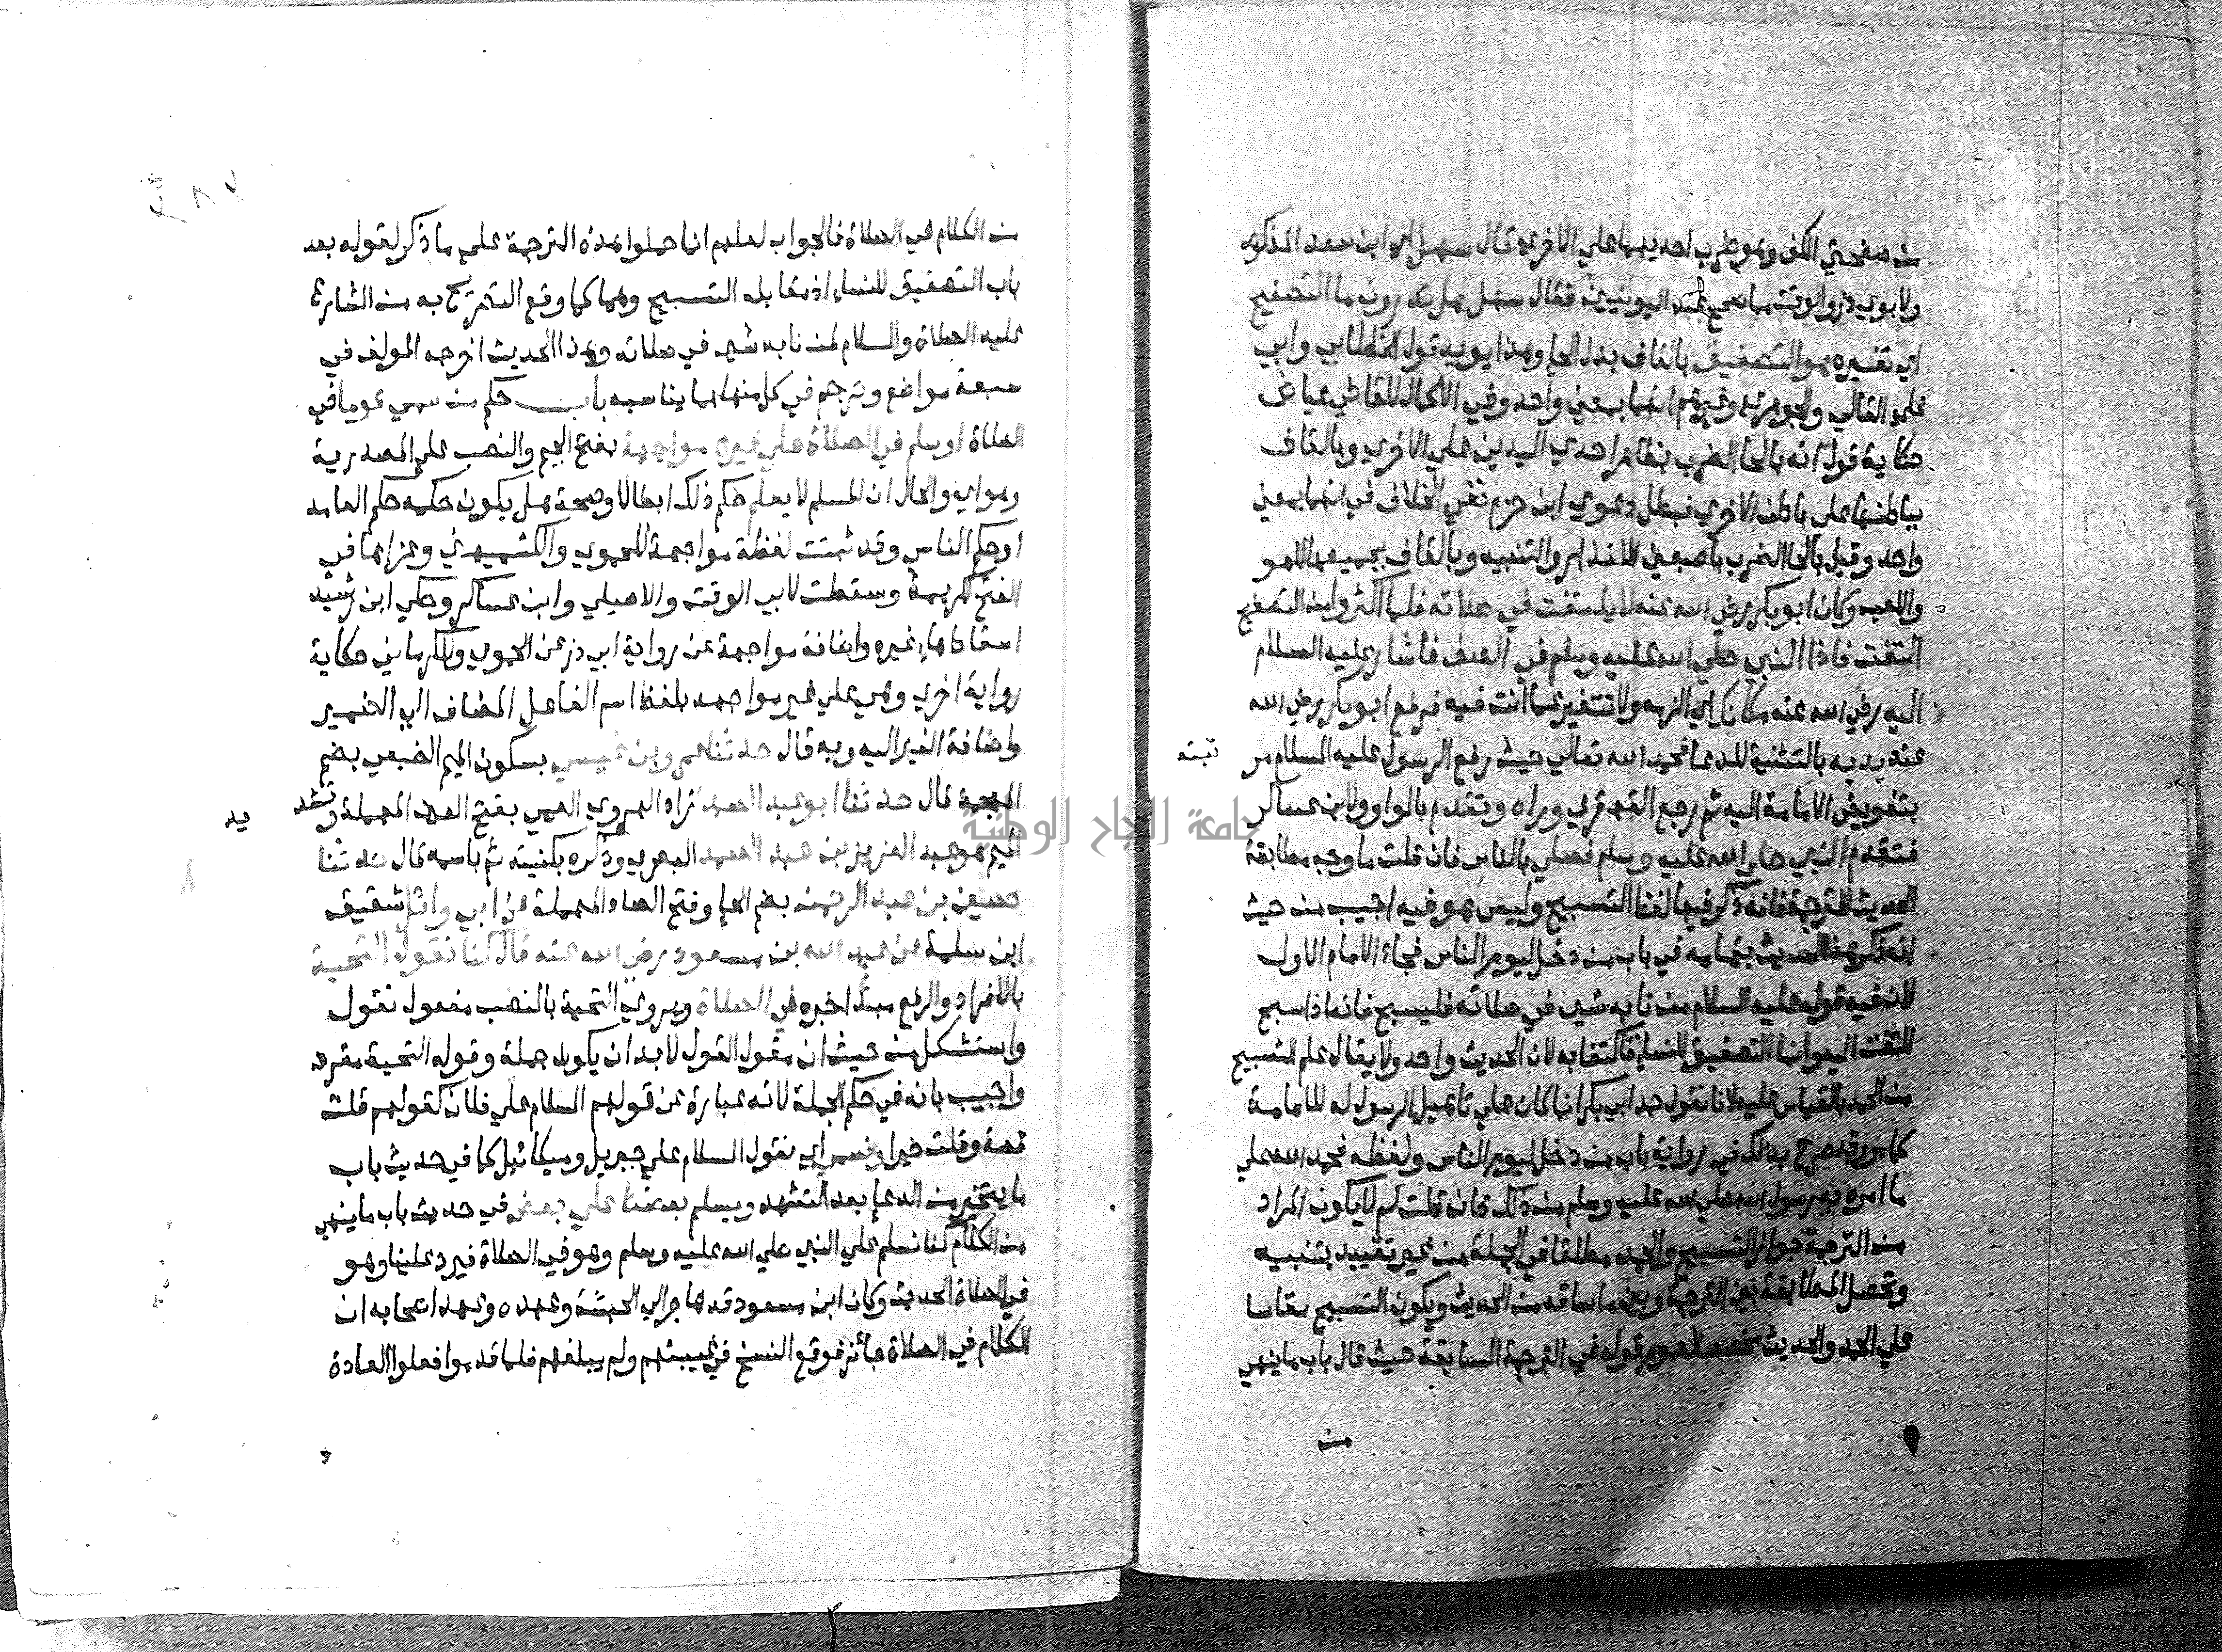 من صفحتي الكف وهو ضرب احديهما علي الاخري قال سهل اي ابن سعد المذكور
ولابوي ذر والوقت مما صحح عند اليونيني فقال سهل هل تدرون ما التصفيح
اي تفسيره هو التصفيق بالقاف بدل الحا وهذا يويد قول الخطابي وابي
علي القالي والجوهري وغيرهم انهما بمعني واحد وفي الاكمال للقاضي عياض
حكاية قول انه بالحا الضرب بظاهر احدي اليدين علي الاخري وبالقاف
بباطنها علي باطن الاخري فبطل دعوي ابن حزم نفي الخلاف في انهما بمعني
واحد وقيل بالحا الضرب باصبعين للانذار والتنبيه وبالقاف بجميعها للهو
واللعب وكان ابو بكر رضي الله عنه لا يلتفت في صلاته فلما اكثروا من التصفيح
التفت فاذا النبي صلي الله عليه وسلم في الصف فاشار عليه السلام
اليه رضي الله عنه مكانك اي الزمه ولا تتغير عما انت فيه فرفع ابو بكر رضي الله
عنه يديه بالتثنية للدعا فحمد الله تعالي حيث رفع الرسول عليه السلام مر
تبته
بتفويض الامامة اليه ثم رجع القهقري وراه وتقدم بالواو ولابن عساكر
فتقدم النبي صلي الله عليه وسلم فصلي بالناس فان قلت ما وجه مطابقة
الحديث للترجمة فانه ذكر فيها لفظ التسبيح وليس هو فيه اجيب من حيث
انه ذكر هذا الحديث بتمامه في باب من دخل ليوم الناس فجاء الامام الاول
لان فيه قوله عليه السلام من نابه شي في صلاته فليسبح فانه اذا سبح
التفت اليه وانما التصفيق للنساء فاكتفا به لان الحديث واحد ولا يقال علم التسبيح
من الحمد بالقياس عليه لانا نقول حمد ابي بكر انما كان علي تاهيل الرسول له للامامة
كما مر وقد صرح بذلك في رواية باب من دخل ليوم الناس ولفظه فحمد الله علي
ما امره به رسول الله صلي الله عليه وسلم من ذلك فان قلت لم لا يكون المراد
من الترجمة جواز التسبيح والحمد مطلقا في الجملة من غير تقييد بتنبيه
وتحصل المطابقة بين الترجمة وبين ما ساقه من الحديث ويكون التسبيح مقاسا
علي الحمد والحديث مخصصا لعموم قوله في الترجمة السابقة حيث قال باب ما ينهي
من
من الكلام في الصلاة فالجواب لعلهم انما حملوا هذه الترجمة علي ما ذكر لقوله بعد
باب التصفيق للنساء اذ مقابله التسبيح وهما كما وقع التصريح به من الشارع
عليه الصلاة والسلام لمن نابه شي في صلاته وهذا الحديث اخرجه المولف في
سبعة مواضع وترجم في كل منها بما يناسبه باب حكم من سمي قوما في
الصلاة او سلم في الصلاة علي غيره مواجهة بفتح الجيم والنصب علي المصدرية
وهو اي والحال ان المسلم لا يعلم حكم ذلك ابطالا وصحة هل يكون حكمه حكم العامد
او حكم الناسي وقد ثبتت لفظة مواجهة للحموي والكشميهني وعزاها في
الفتح لكريمة وسقطت لابي الوقت والاصيلي وابن عساكر وحكي ابن رشيد
اسقاط هاء غيره واضافة مواجهة عن رواية ابي ذر عن الحموي والكرماني حكاية
رواية اخري وهي علي غير مواجهه بلفظ اسم الفاعل المضاف الي الضمير
واضافة الغير اليه وبه قال حدثنا عمرو بن عيسي بسكون الميم الضبعي بضم
المعجمة قال حدثنا ابو عبد الصمد زاد الهروي العمي بفتح العين المهملة وتشد
يد
الميم هو عبد العزيز بن عبد الصمد البصري وذكره بكنيته ثم باسمه قال حدثنا
حصين بن عبد الرحمن بضم الحاء وفتح الصاد المهملة عن ابي وائل شقيق
ابن سلمة عن عبد الله بن مسعود رضي الله عنه قال كنا نقول التحية
بالافراد والرفع مبتدا خبره في الصلاة ويروي التحية بالنصب مفعول نقول
واستشكل من حيث ان مقول القول لا بد ان يكون جملة وقوله التحية مفرد
واجيب بانه في حكم الجملة لانه عبارة عن قولهم السلام علي فلان كقولهم قلت
قصة وقلت خبرا ونسمي اي نقول السلام علي جبريل وميكائيل كما في حديث باب
ما يتخير من الدعاء بعد التشهد ويسلم بعضنا علي بعض في حديث باب ما ينهي
من الكلام كنا نسلم علي النبي صلي الله عليه وسلم وهو في الصلاة فيرد علينا وهو
في الصلاة الحديث وكان ابن مسعود قد هاجر الي الحبشة وعهده وعهد اصحابه ان
الكلام في الصلاة جائز فوقع النسخ في غيبتهم ولم يبلغهم فلما قدموا فعلوا العادة
جامعة النجاح الوطنية